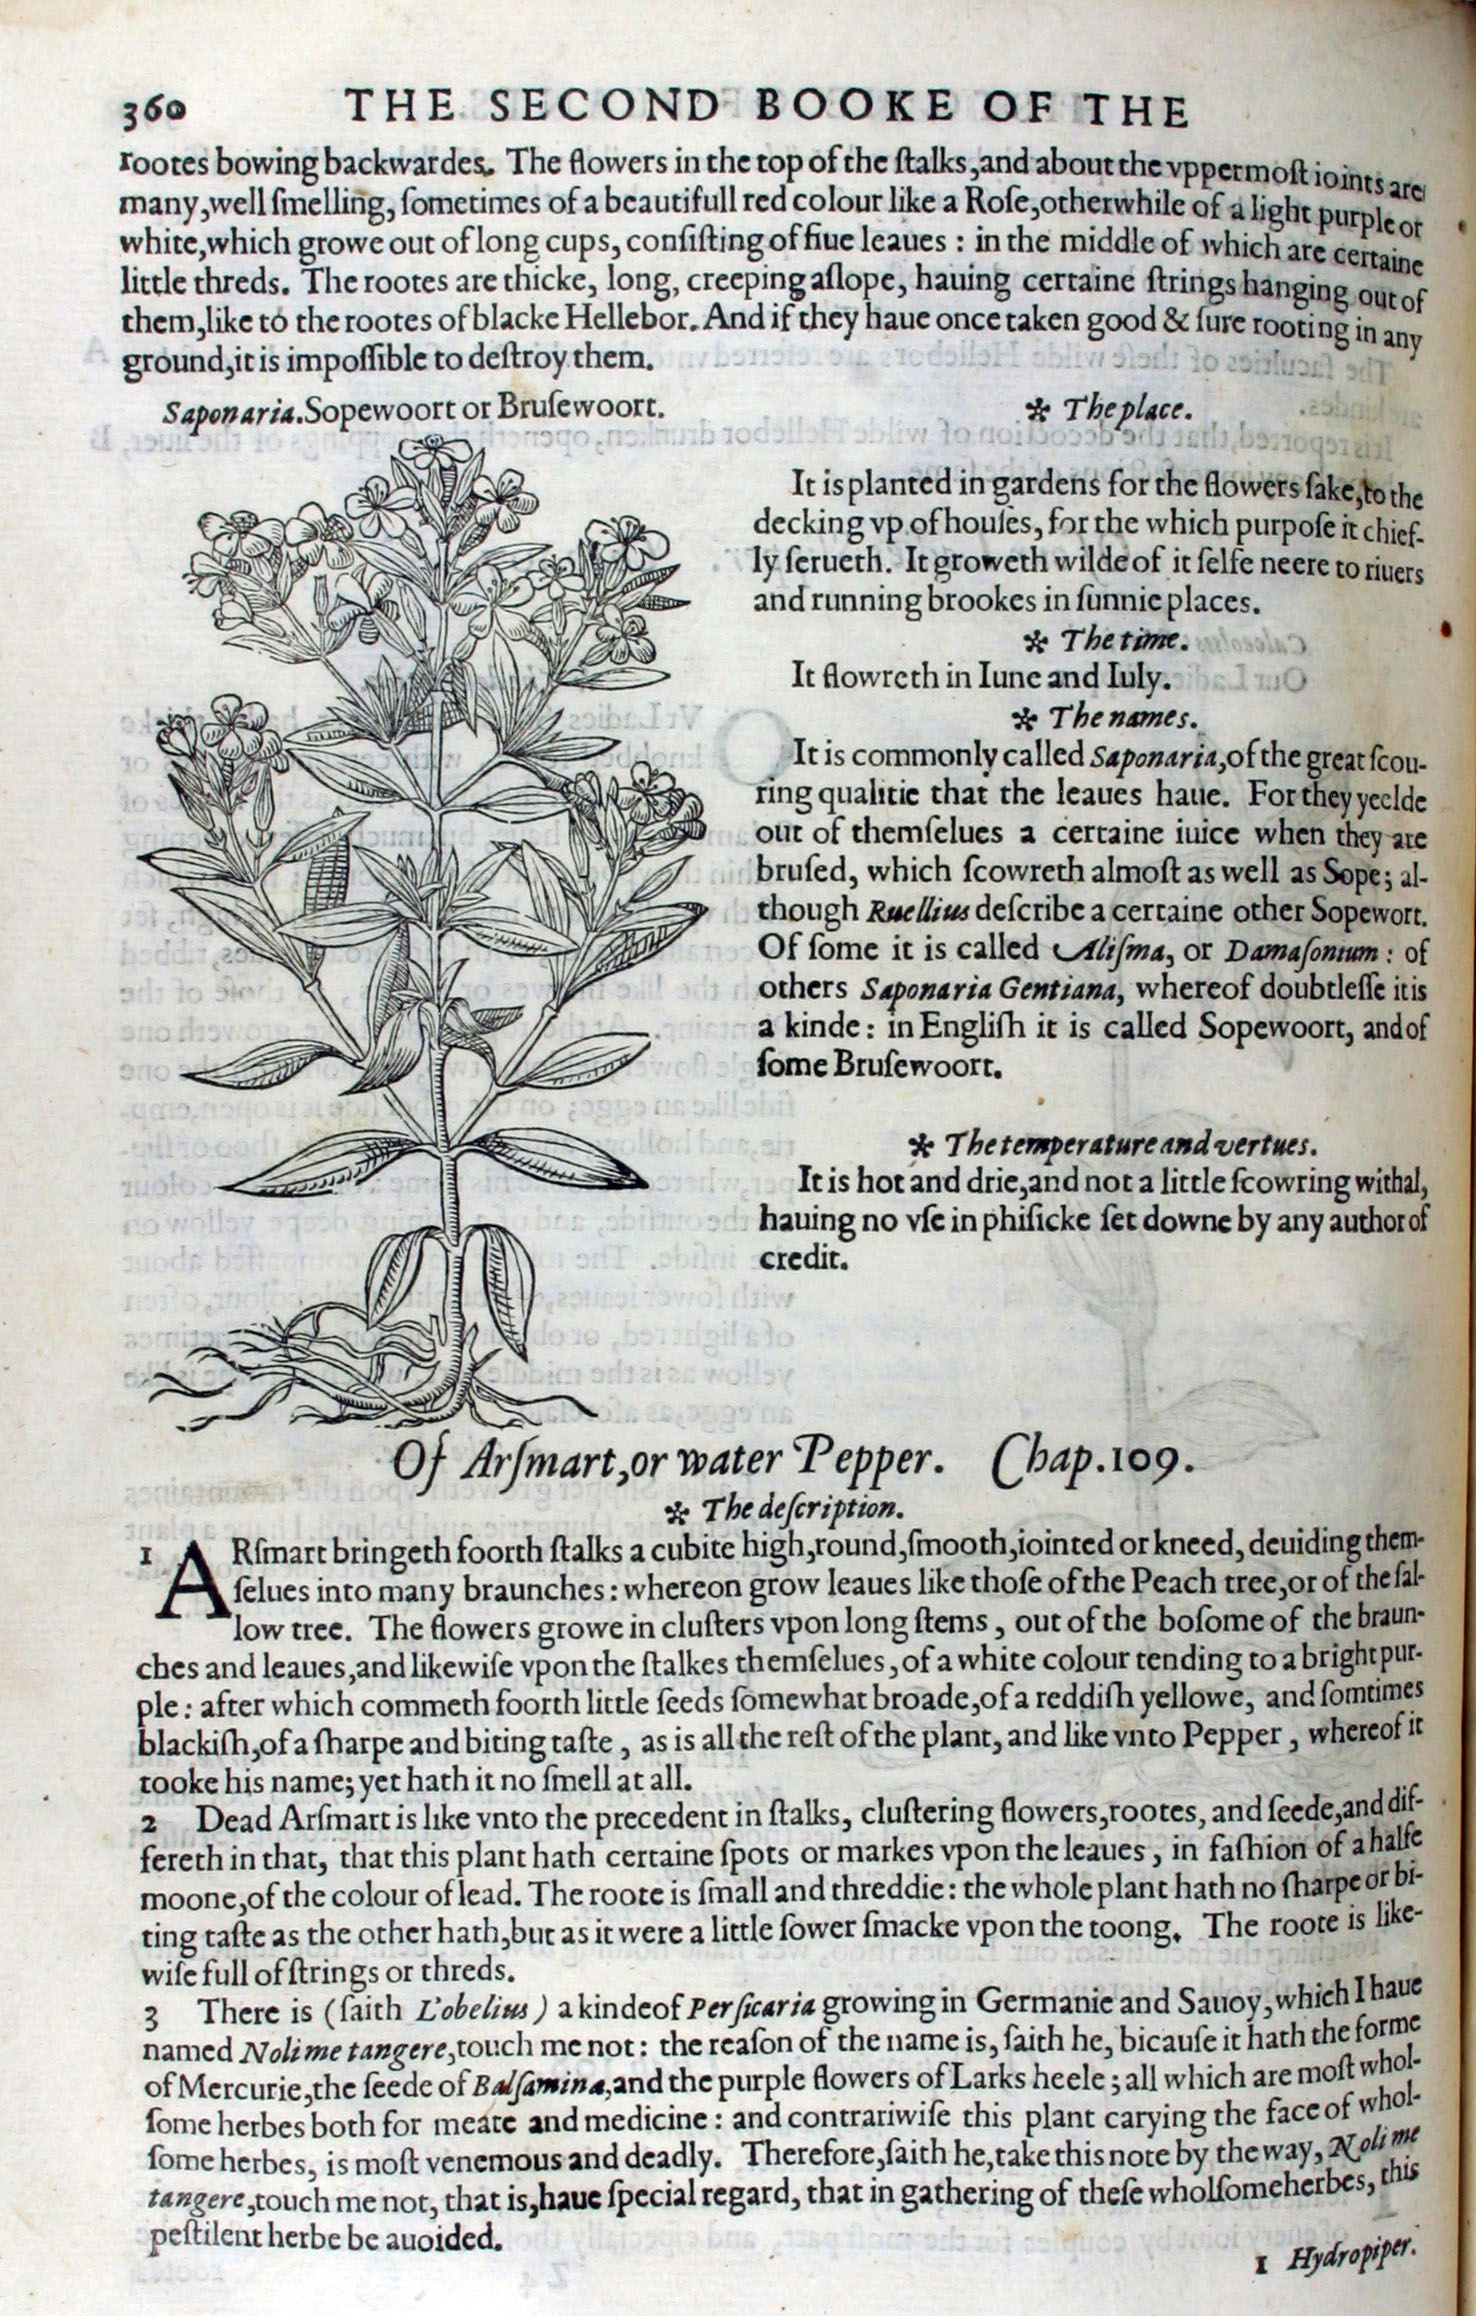 360 THE SECOND BOOKE OF THE
rootes bowing backwardes. The flowers in the top of the ſtalks,and about the vppermoſt ioints are
many,well ſmelling, ſometimes of a beautifull red colour like a Roſe,otherwhile of a light purple or
white,which growe out of long cups, conſiſting of fiue leaues : in the middle of which are certaine
little threds. The rootes are thicke, long, creeping aſlope, hauing certaine ſtrings hanging out of
them,like to the rootes of blacke Hellebor. And if they haue once taken good & ſure rooting in any
ground,it is impoſſible to deſtroy them.
Saponaria. Sopewoort or Bruſewoort.
✲ The place.
It is planted in gardens for the flowers ſake,to the
decking vp of houſes, for the which purpoſe it chief-
ly ſerueth. It groweth wilde of it ſelfe neere to riuers
and running brookes in ſunnie places.
✲ The time.
It flowreth in Iune and Iuly.
✲ The names.
It is commonly called Saponaria,of the great ſcou-
ring qualitie that the leaues haue. For they yeelde
out of themſelues a certaine iuice when they are
bruſed, which ſcowreth almoſt as well as Sope; al-
though Ruellius deſcribe a certaine other Sopewort.
Of ſome it is called Aliſma, or Damaſonium : of
others Saponaria Gentiana, whereof doubtleſſe it is
a kinde : in Engliſh it is called Sopewoort, and of
ſome Bruſewoort.
✲ The temperature and vertues.
It is hot and drie,and not a little ſcowring withal,
hauing no vſe in phiſicke ſet downe by any author of
credit.
Of Arſmart,or water Pepper. Chap.109.
✲ The deſcription.
1 ARſmart bringeth foorth ſtalks a cubite high,round,ſmooth,iointed or kneed, deuiding them-
ſelues into many braunches : whereon grow leaues like thoſe of the Peach tree,or of the ſal-
low tree. The flowers growe in cluſters vpon long ſtems , out of the boſome of the braun-
ches and leaues,and likewiſe vpon the ſtalkes themſelues,of a white colour tending to a bright pur-
ple : after which commeth foorth little ſeeds ſomewhat broade,of a reddiſh yellowe, and ſomtimes
blackiſh,of a ſharpe and biting taſte , as is all the reſt of the plant, and like vnto Pepper , whereof it
tooke his name; yet hath it no ſmell at all.
2 Dead Arſmart is like vnto the precedent in ſtalks, cluſtering flowers,rootes, and ſeede,and dif-
fereth in that, that this plant hath certaine ſpots or markes vpon the leaues , in faſhion of a halfe
moone,of the colour of lead. The roote is ſmall and threddie : the whole plant hath no ſharpe or bi-
ting taſte as the other hath,but as it were a little ſower ſmacke vpon the toong. The roote is like-
wiſe full of ſtrings or threds.
3 There is (ſaith L'obelius ) a kinde of Perſicaria growing in Germanie and Sauoy,which I haue
named Noli me tangere,touch me not : the reaſon of the name is, ſaith he, bicauſe it hath the forme
of Mercurie,the ſeede of Balſamina,and the purple flowers of Larks heele ; all which are moſt whol-
ſome herbes both for meate and medicine : and contrariwiſe this plant carying the face of whol-
ſome herbes, is moſt venemous and deadly. Therefore,ſaith he,take this note by the way, Noli me
tangere,touch me not, that is,haue ſpecial regard, that in gathering of theſe wholſome herbes, this
peſtilent herbe be auoided.
1 Hydropiper.